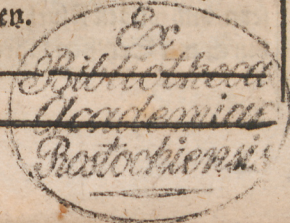 en.
Ex
Bibliotheca
Academiae
Rostochiensis